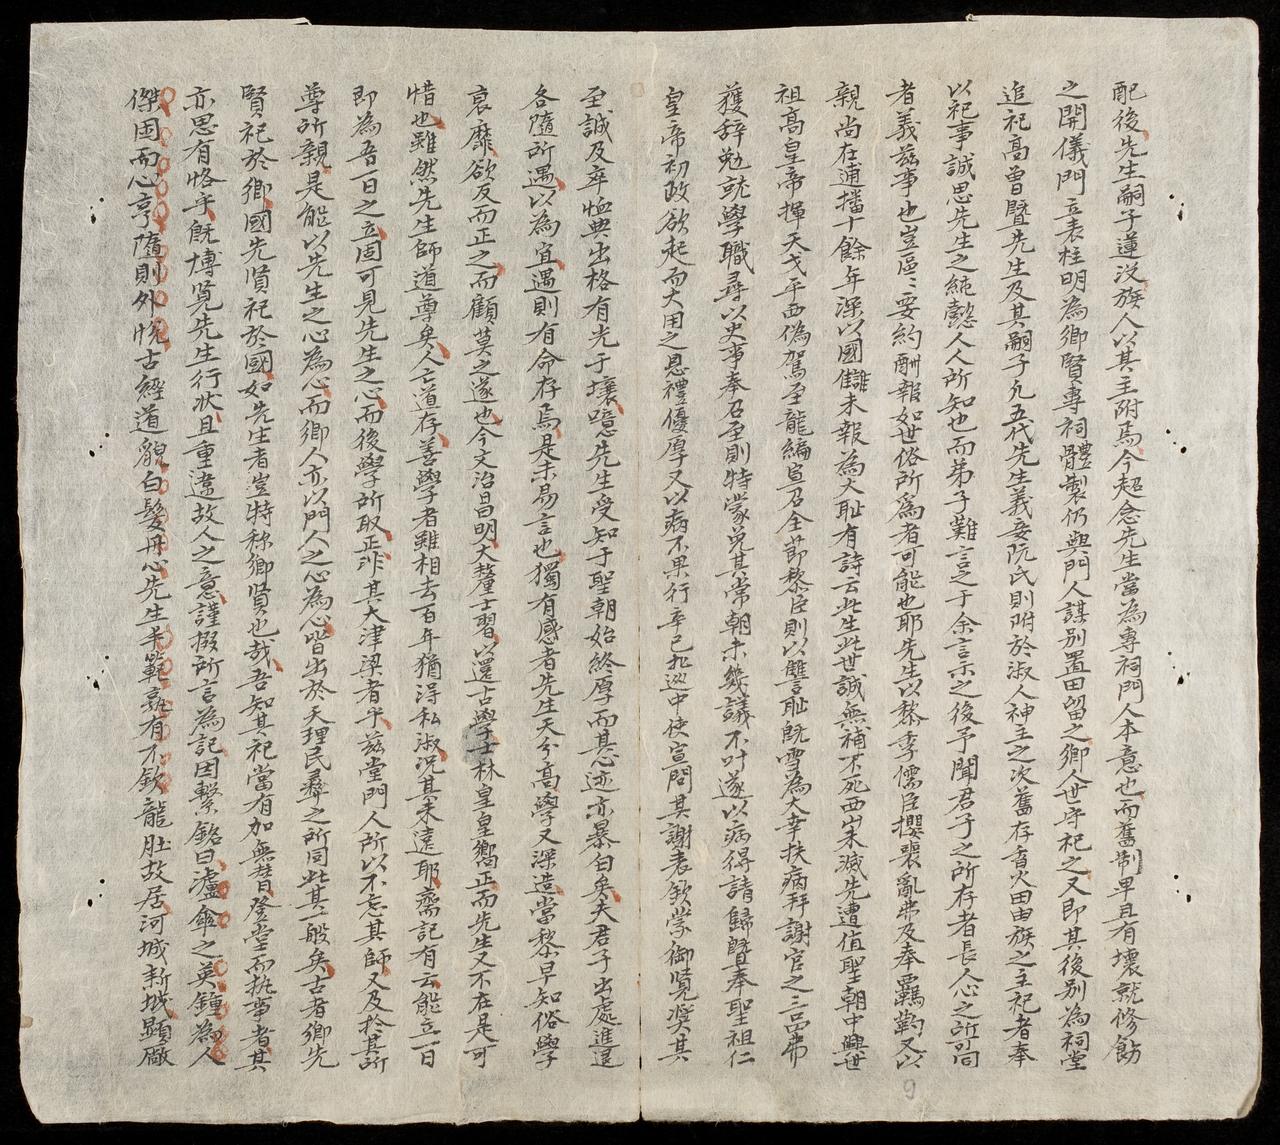 配後先生嗣子蓮沒族人以其主附焉今超念先生當為專祠門人本意也而舊制卑且有壞就修飭
之開儀門立表柱明為鄉賢專祠體製仍與門人謀別置田留之鄉人世守祀之又即其後別為祠堂
追祀高曾暨先生及其嗣子允五代先生義妾阮氏則附於淑人神主之次舊存香火田由族之主祀者奉
以祀事誠思先生之純懿人人所知也而弟子難言之于余言示之後予聞君子之所存者長人心之所同
者義茲事也豈區〻要約酬報如世俗所為者可能也耶先生以黎季儒臣攖喪亂弗及奉羈靮又以
親尚在逋播十餘年深以國讎未報為大恥有詩云此生此世誠無補不死西山未滅先遭值聖朝中興世
祖高皇帝揮天戈平西偽駕至龍編宣召全節黎臣則以讐恥既雪為大幸扶病拜謝官之三品弗
獲辭勉就學職尋以史事奉召至則特蒙免其常朝未幾議不叶遂以病得請歸暨奉聖祖仁
皇帝初政欲起而大用之恩禮優厚又以病不果行辛巳北巡中使宣問其謝表欽蒙御覽獎其
至誠及卒恤典出格有光于壤噫先生受知于聖朝始終厚而其心迹亦暴白矣夫君子出處進退
各隨所遇以為宜遇則有命存焉是未易言也獨有感者先生天分高學又深造當黎早知俗學
衰靡欲反而正之而顧莫之遂也今文治昌明大釐士習以還古學士林皇皇嚮正而先生又不在是可
惜也雖然先生師道尊矣人亡道存善學者雖相去百年猶得私淑況其未遠耶齋記有云能立一日
即為吾一日之立固可見先生之心而後學所取正詐其大津梁者乎茲堂門人所以不忘其師又及於其所
尊所親是能以先生之心為心而鄉人亦以門人之心為心皆出於天理民彝之所同此其一般矣古者鄉先
賢祀於鄉國先賢祀於國如先生者豈特称鄉賢也哉吾知其祀當有加無替登堂而執事者其
亦思有恪乎既博覽先生行狀且重違故人之意謹掇所言為記因繫銘曰瀘傘之英鐘為人
傑困而心亨隨則外悅古經道貌白髮丹心先生半範孰有不欽龍肚故居河城新城顯敞
9